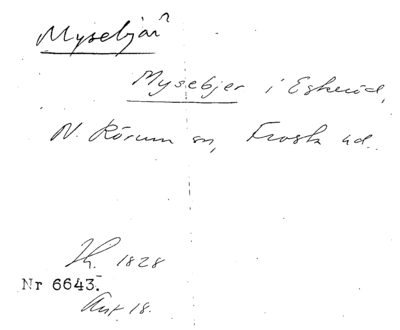 Mysebjär
Mysebjer i Eskeröd,
N. Rörum sn, Frosta hd.
Ih. 1828
Nr 6643.
Avt 18.